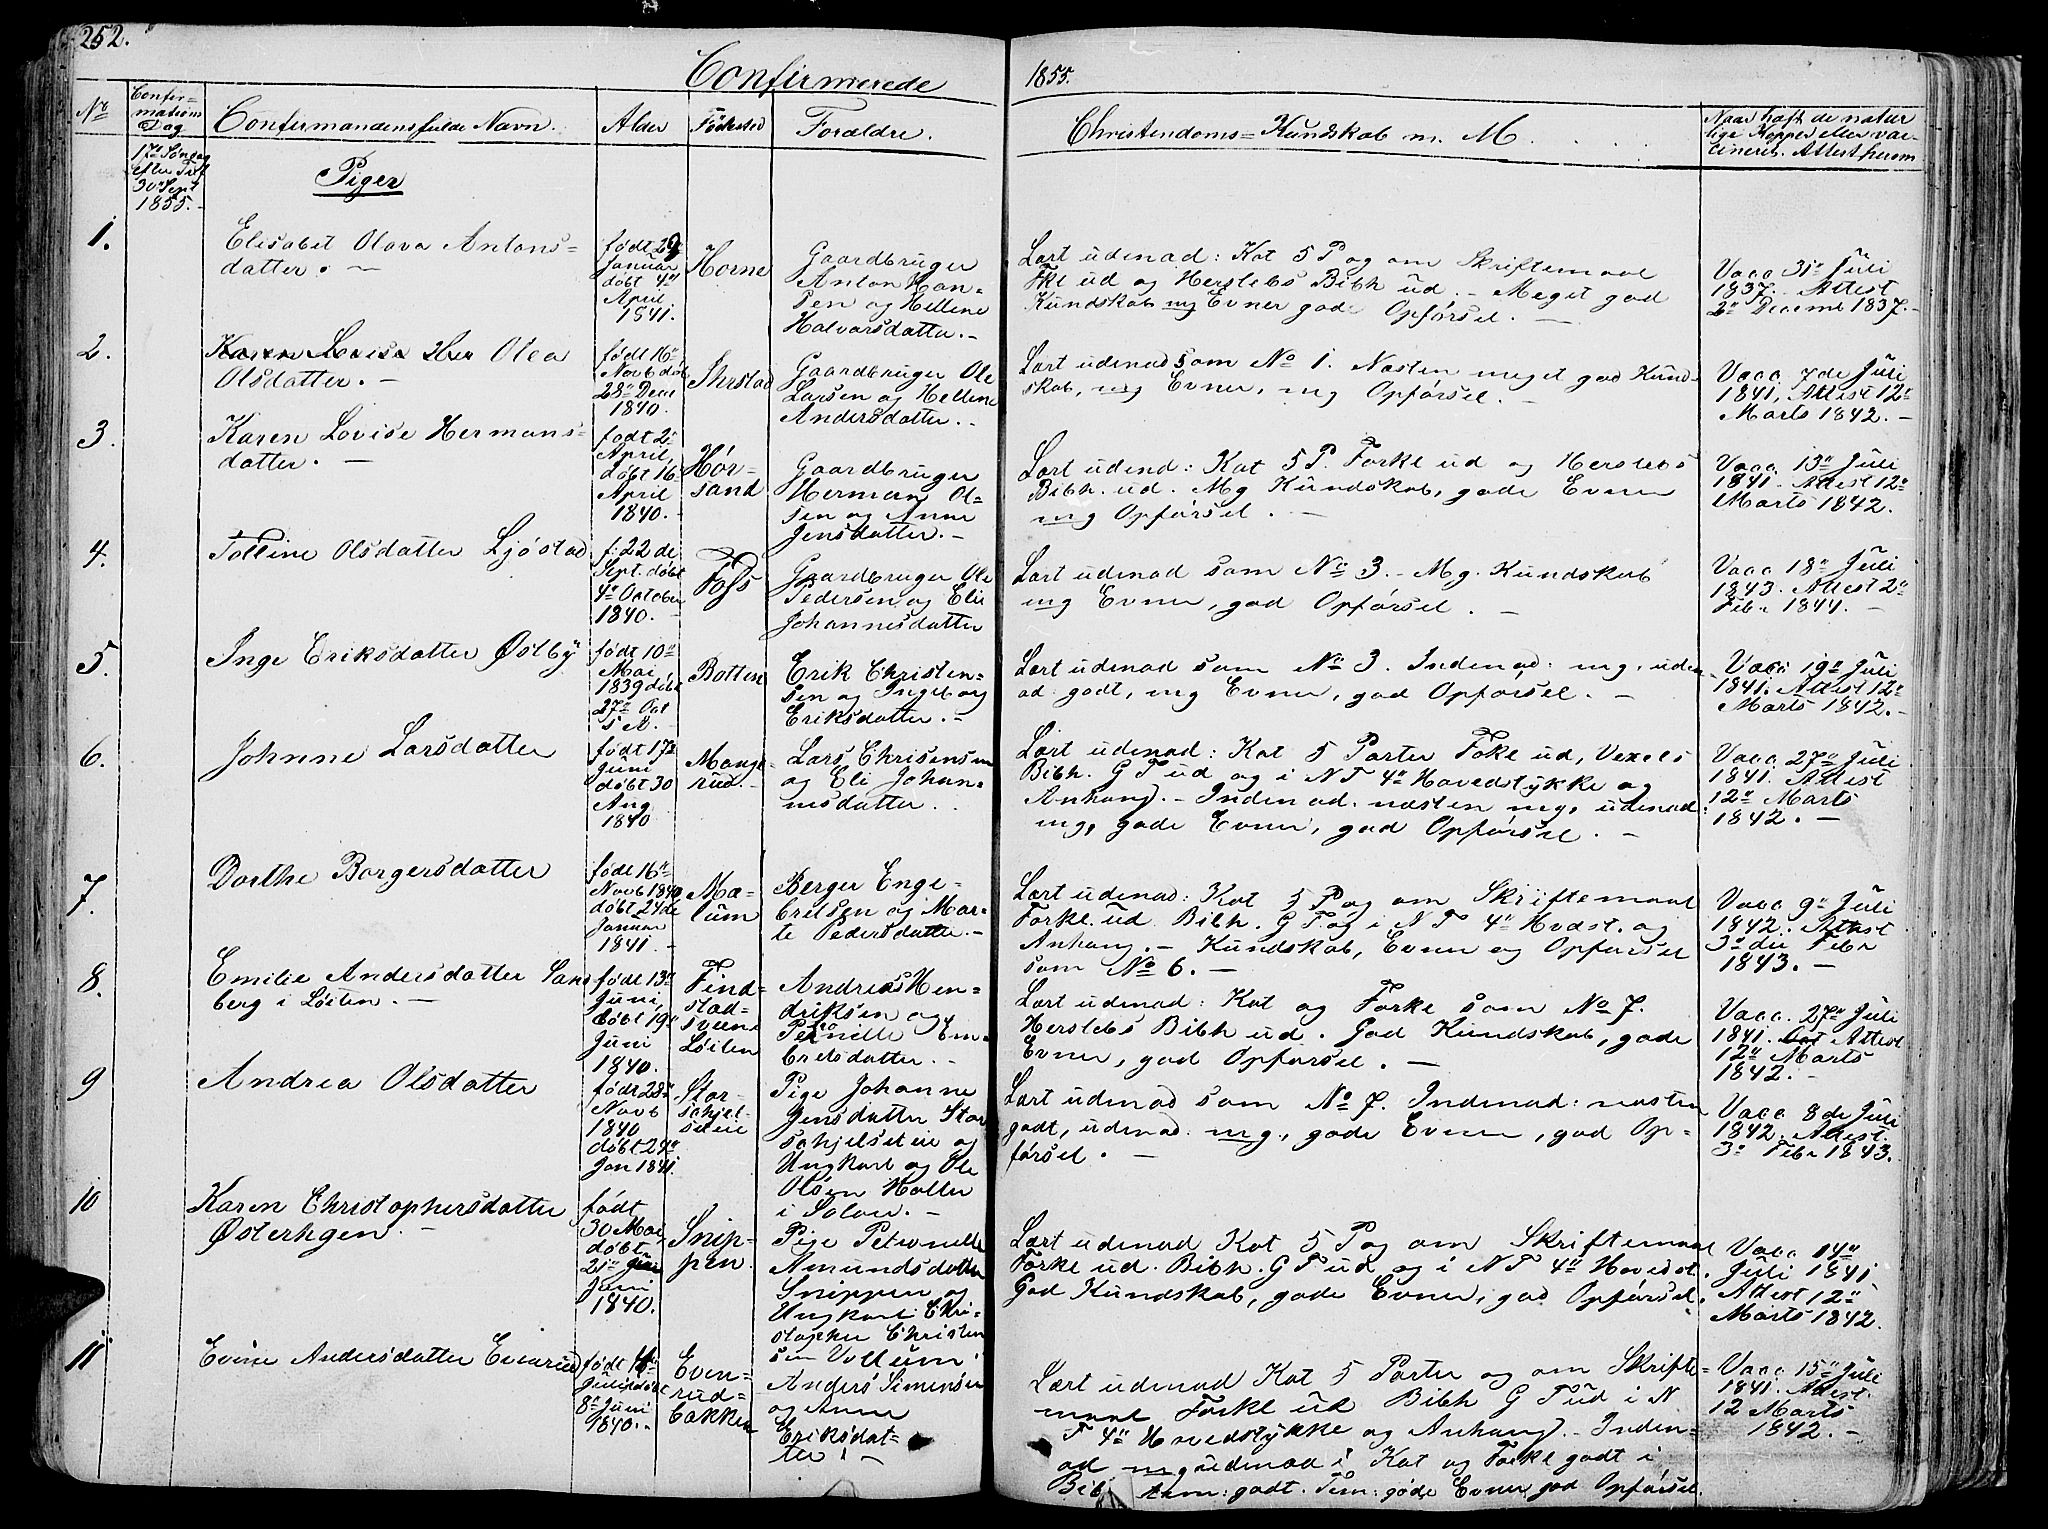 252.
Confirmerede
1855.
No
Confir=
mations
Dag
Confirmandens fulde Navn.
Alder
Födested
Forældre.
Christendoms=Kundskab m. M.
Naar haft de natur
lige Kopper eller vac-
cineret. Attest herom
17de Søndag
efter Tref
30te Sept
1855.-
Piger
1.
Elisabet Olava Antons=
datter. —
født 29
Januar
døbt 4de
April
1841.
Horne
Gaardbruger
Anton Han-
sen og Hellene
Halvorsdatter.-
Lært udenad: Kat 5 P og om Skriftemaal
Fkl ud og Herslebs Bibh ud. - Meget god
Kundskab mg Evner gode Opførsel. —
Vacc 31te Juli
1837. Attest
2den Decemb 1837.-
2.
Karen Lovise Her Olea
Olsdatter. -
født 16de
Novb døb
28de Dec
1840.
Gaardbruger Ole
Larsen og Hellene
Andersdatter..
Lært udenad som No 1. Næsten meget god Kund-
skab, mg Evner, mg Opførsel. -
Vacc 7de Juli
1841, Attest 12te
Marts 1842. -
3.
Karen Lovise Hermans=
datter. —
født 2den
April,
døbt 16de
April
1840. -
Hør-
sand
Gaardbruger
Herman Ol-
sen og Anne
Jensdatter. -
Lært udend: Kat 5 P. Forkl ud og Herslebs
Bibh. ud. Mg Kundskab, gode Evner
mg Opførsel. -
Vacc 13de Juli
1841. Attest 12te
Marts 1842.
4.
Tolline Olsdatter Ljøstad
f: 22 de
Sept. døbt
4de October
1840. -
Foss
Gaardbruger Ole
Pedersen og Eli
Johannesdatter
Lært udenad som No 3. - Mg. Kundskab
mg Evner, god Opførsel. -
Vacc 18de Juli
1843. Attest 2den
Febr 1844. -
5.
Inge Eriksdatter Østby
født 10de
Mai
1839 døbt
27de Oct
s A. -
Botten
Erik Christen-
sen og Ingeborg
Eriksdatter. -
Lært udenad som No 3. Indenad: mg. uden
ad godt, mg Evner, god Opførsel. -
Vacc 19de Juli
1841. Attest 12te
Marts 1842. -
6.
Johnne Larsdatter
født 17de
Juni
døbt 30
Aug
1840
Mange-
rud. -
Lars Chrisensen
og Eli Johan-
nesdatter..
Lært udenad: Kat 5 Parter Fokl ud, Vexels
Bibh. G T ud og i N T 4de Hovedstykke og
Anhang. - Indenad. næsten mg, udenad:
mg, gode Evner, god Opførsel. -
Vacc 27de Juli
1841. Attest
12te Marts
1842. -
7.
Dorthe Borgersdatter
føde 16de
Novb 1840
døbt 24de
Januar
1841. -
Mæ-
lum
Berger Enge-
bretsen og Mar-
te Pedersdatter. -
Lært udenad: Kat 5 P og om Skriftemaal
Forkl. ud Bibh. G T og i N T 4de Hvdst. og
Anhang. - Kundskab, Evner og Opførsel
som No 6. -
Vacc 9de Juli
1842. Attest
3die Febr
1843. -
8.
Emilie Andersdatter
berg i Løiten. -
føde 13de
Juni,
døbt 19de
Juni
1840.
Find-
stad-
sveene
Løiten
Andreas Hen-
driksen og
Pernille Em-
bretsdatter. -
Lært udenad: Kat og Forkl som No 7.
Herslebs Bibh ud. God Kundskab, gode
Evner, god Opførsel. -
Vacc. 27de Juli
1841. Oct Attest
12te Marts
1842. -
9
Andrea Olsdatter
født 28de
Novb
1840
døbt 24de
Jan 1841.
Stor-
schjel-
seteie
Pige Johanne
Jensdatter Stor
schjelseteie og
Ungkarl og Ole
Olsen Holter
i Soløer. -
Lært udenad som No 7. Indenad: næsten
godt, udenad. mg., gode Evner, god Op-
førsel. -
Vacc 8de Juli
1842. Attest.
3die Febr 1843.
10
Karen Christophersdatter
Østerhgen. -
født
30 Mai,
døbt
21de Juni
Juni
1840.
Snip-
pen.
Pige Petronelle
Amundsdatter
Snippen og
Ungkarl: Chri-
stopher Christen
sen Vollum
Lært udenad Kat 5 P og om Skriftemaal
Forkl ud. Bibh. G T ud og i N T 4de Hovedst.
God Kundskab, gode Evner, god Opførsel.
Vacc 14de
Juli 1841
Attest 12te
Marts 1842.
11
Evine Andersdatter
født 4de
døbt
8de Juni
1840. -
Even-
rud-
bakken
Anders Simensen
og Anne
Eriksdat-
ter. -
Lært udenad Kat 5 Parter og om Skrifte=
maal Forkl ud Bibh G T ud i N
T 4de Hovedstykke og Anhang. - Inden=
ad mg udenad i Kat og Forkl godt i
Bib. tem: godt. Tem: gode Evner god Opførsel.
Vacc 15de Juli
1841. Attest.
12 Marts
1842. -